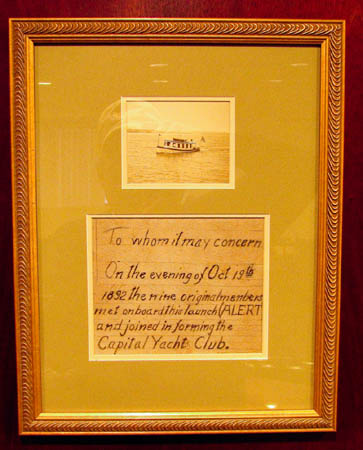 To whom it may concern
On the evening of Oct 19th
1892 the nine original members
met on board this launch (ALERT
and joined in forming the
Capital Yacht Club.